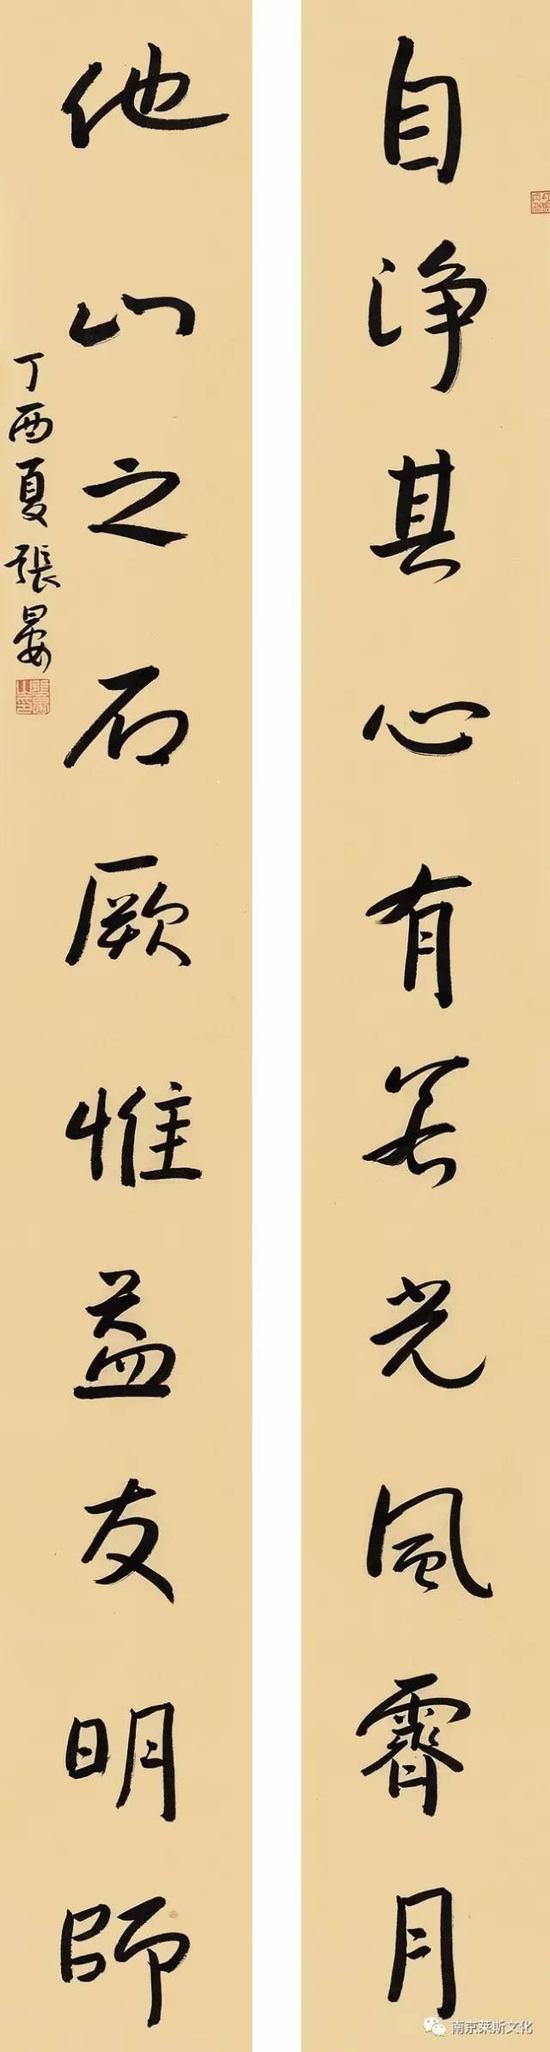 自淨其心有若光風霽月
他山之石厥惟益友明師
丁酉夏張晏
南京莱斯文化